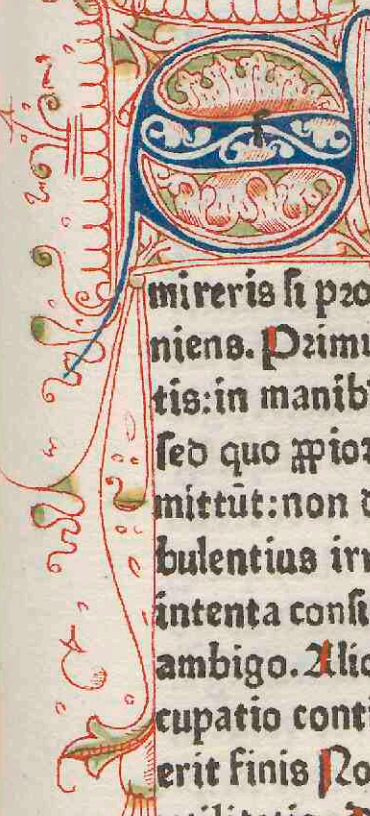 E
mireris ſi pꝛo
niens. Pꝛimu
tis:in manib
ſed quo ꝓpioꝛ
mittūt:non d
bulentius irr
intenta conſi
ambigo. Alic
cupatio conti
erit finis No